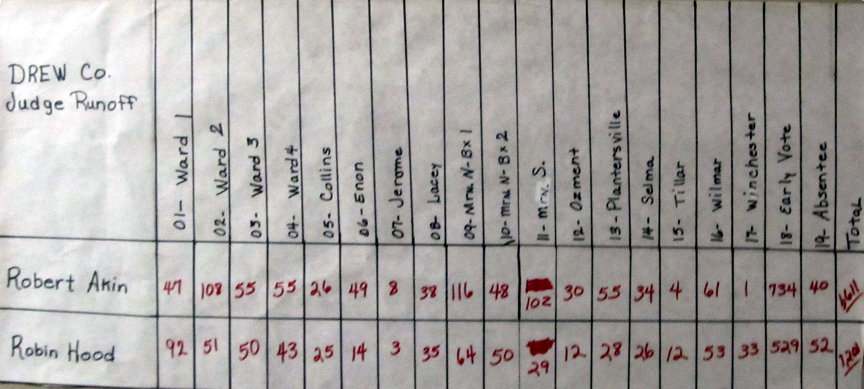 DREW Co.
Judge Runoff
01- Ward 1
02- Ward 2
03- Ward 3
04- Ward 4
05- Collins
06- Enon
07- Jerome
08- Lacey
09- Mrw. N-Bx 1
10- mrw. N-Bx 2
11- Mrw. S.
12- Ozment
13- Plantersville
14- Selma
15- Tillar
16- Wilmar
17- Winchester
18- Early Vote
19- Absentee
Total
Robert Akin 47 108 55 55 26 49 8 38 116 48 102 30 55 34 4 61 1 734 40 1611
Robin Hood 92 51 50 43 25 14 3 35 64 50 29 12 28 26 12 53 33 529 52